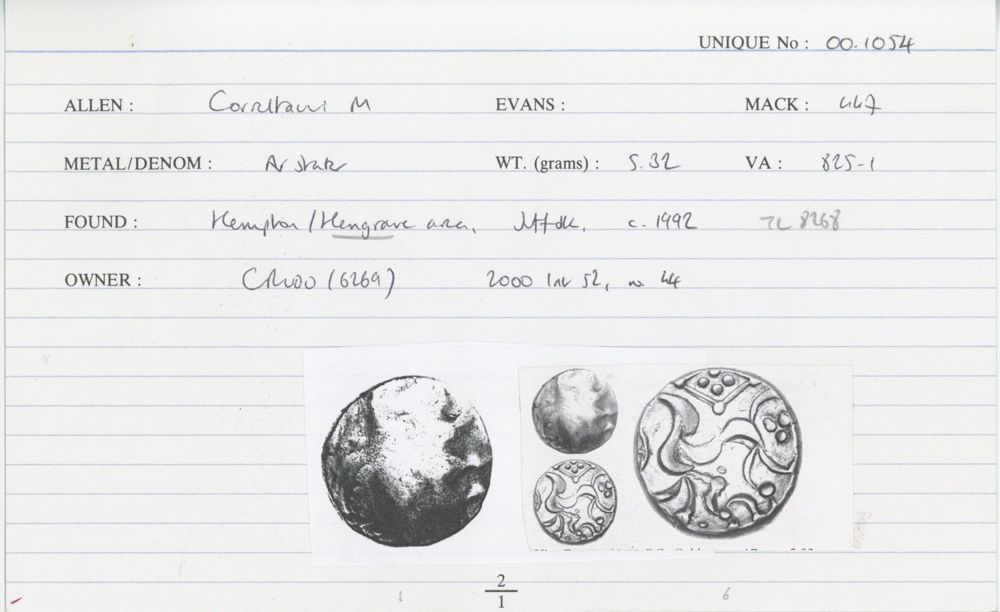 UNIQUE No : 00.1054
ALLEN : Corieltauvi M EVANS : MACK : 447
METAL/DENOM : Av stater WT. (grams) : 5.32 VA : 825-1
FOUND : Hempton / Hengrave area, c. 1992 TL 8268
OWNER : CR100 (6269) 2000 Inv 52, no. 44
2
1
1 6